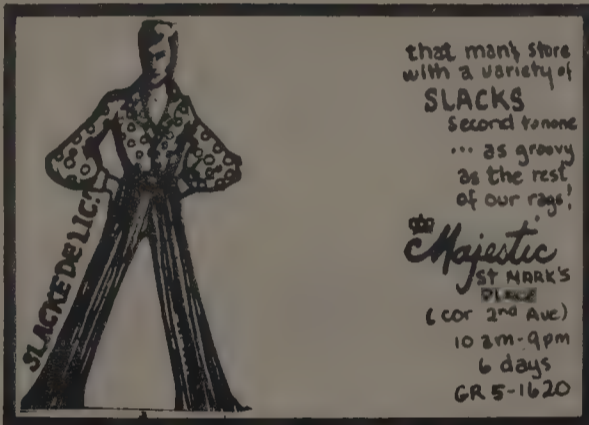 SLACKEDELIC!
that man's store
with a variety of
SLACKS
second to none
... as groovy
as the rest
of our rags!
Majestic
ST MARK'S
PLACE
(cor 2nd Ave)
10 am-9pm
6 days
GR 5-1620